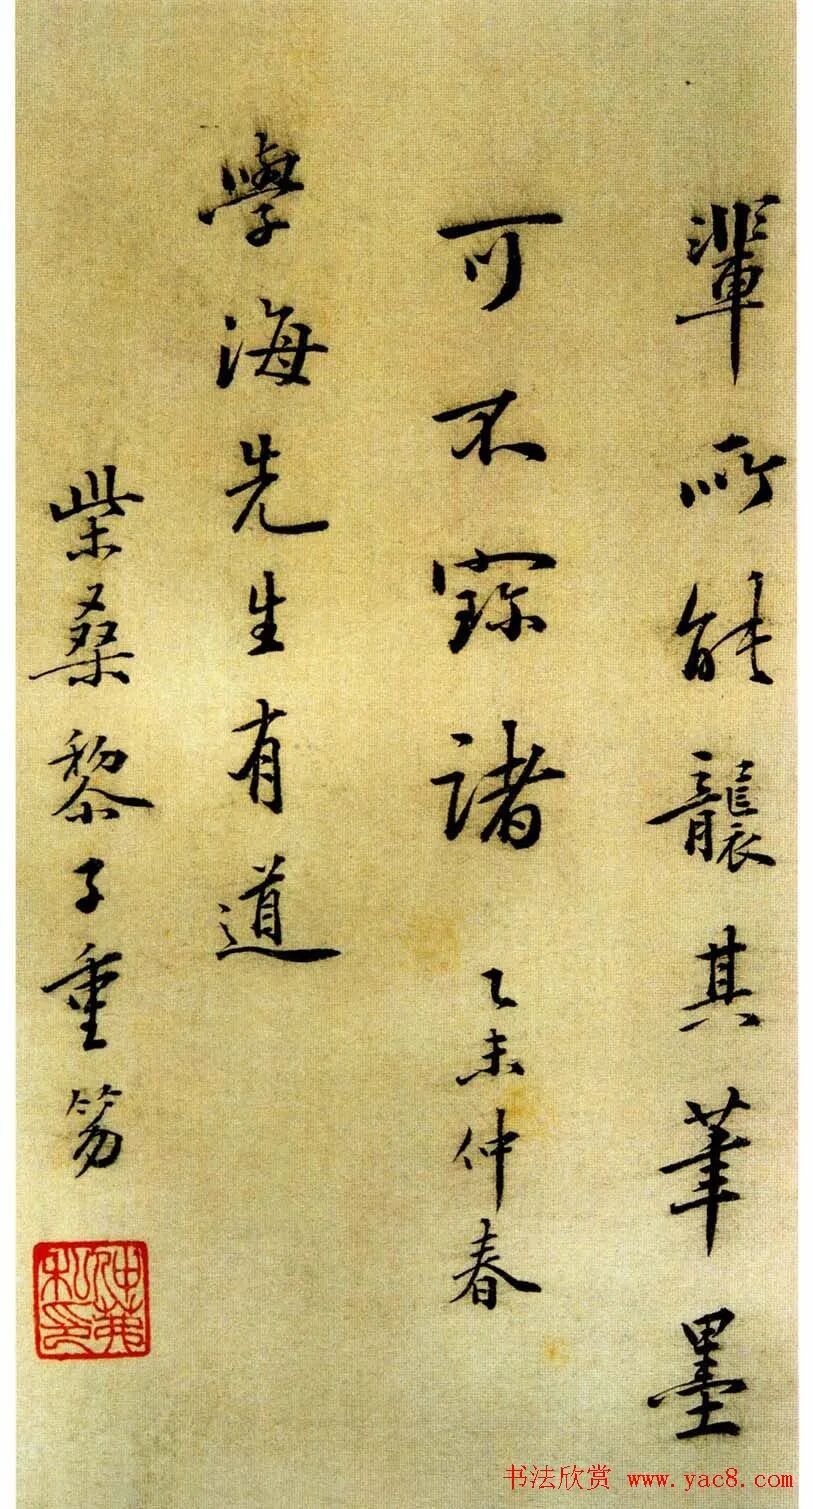 輩所能襲其筆墨
可不寶諸 乙未仲春
學海先生有道
柴桑黎子重
书法欣赏 www.yac8.com